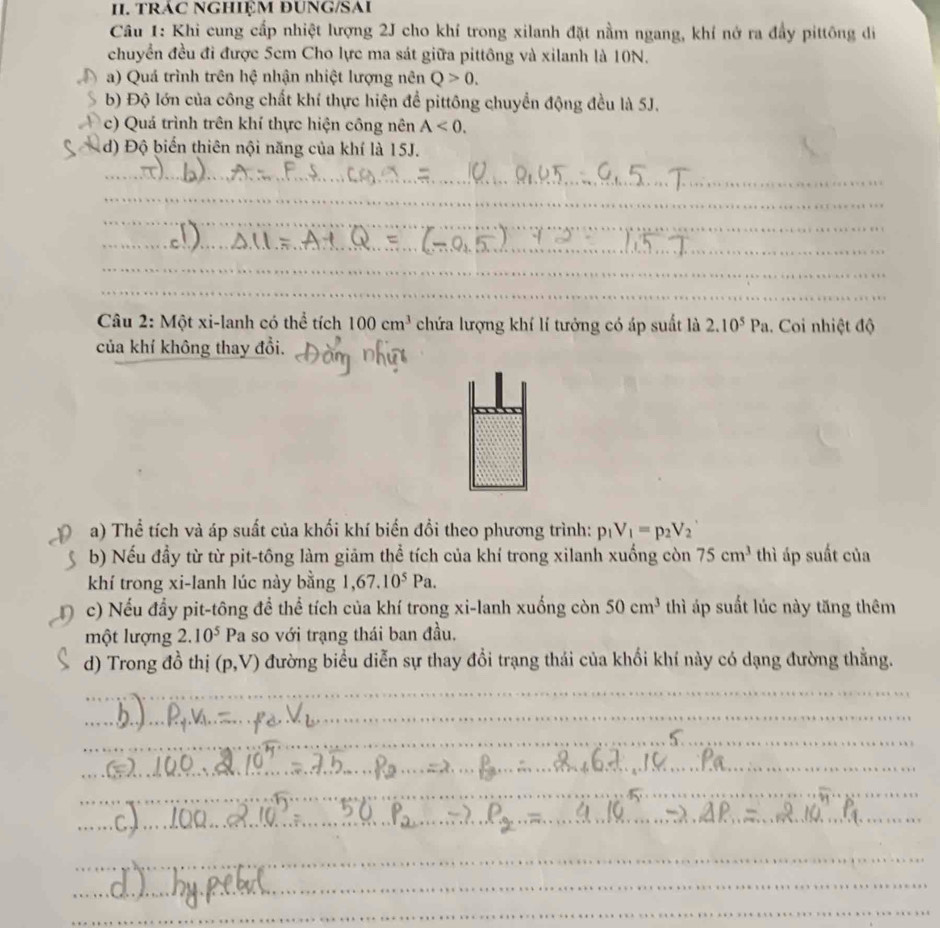 II. TRẮC NGHIỆM ĐÚNG/SAI
Câu 1: Khi cung cấp nhiệt lượng 2J cho khí trong xilanh đặt nằm ngang, khí nở ra đẩy pittông di
chuyển đều đi được 5cm Cho lực ma sát giữa pittông và xilanh là 10N.
Đ a) Quá trình trên hệ nhận nhiệt lượng nên Q > 0.
S b) Độ lớn của công chất khí thực hiện để pittông chuyển động đều là 5J.
Đ c) Quá trình trên khí thực hiện công nên A < 0.
S d) Độ biến thiên nội năng của khí là 15J.
b) A = F.S.cos α = 10.0,05 = 0,5 J
d) ΔU = A + Q = (-0,5) + 2 = 1,5 J
Câu 2: Một xi-lanh có thể tích 100 cm³ chứa lượng khí lí tưởng có áp suất là 2.10⁵ Pa. Coi nhiệt độ
của khí không thay đổi. Đẳng nhiệt
Đ a) Thể tích và áp suất của khối khí biến đổi theo phương trình: p₁V₁ = p₂V₂
S b) Nếu đẩy từ từ pit-tông làm giảm thể tích của khí trong xilanh xuống còn 75 cm³ thì áp suất của
khí trong xi-lanh lúc này bằng 1,67.10⁵ Pa.
Đ c) Nếu đẩy pit-tông để thể tích của khí trong xi-lanh xuống còn 50 cm³ thì áp suất lúc này tăng thêm
một lượng 2.10⁵ Pa so với trạng thái ban đầu.
S d) Trong đồ thị (p,V) đường biểu diễn sự thay đổi trạng thái của khối khí này có dạng đường thẳng.
b.) P₁.V₁ = P₂.V₂
(=) 100.2.10⁵ = 75 P₂ => P₂ = 2,67.10⁵ Pa
c) 100.2.10⁵ = 50 P₂ -> P₂ = 4.10⁵ -> ΔP = 2.10⁵ P₁
d) hypebol